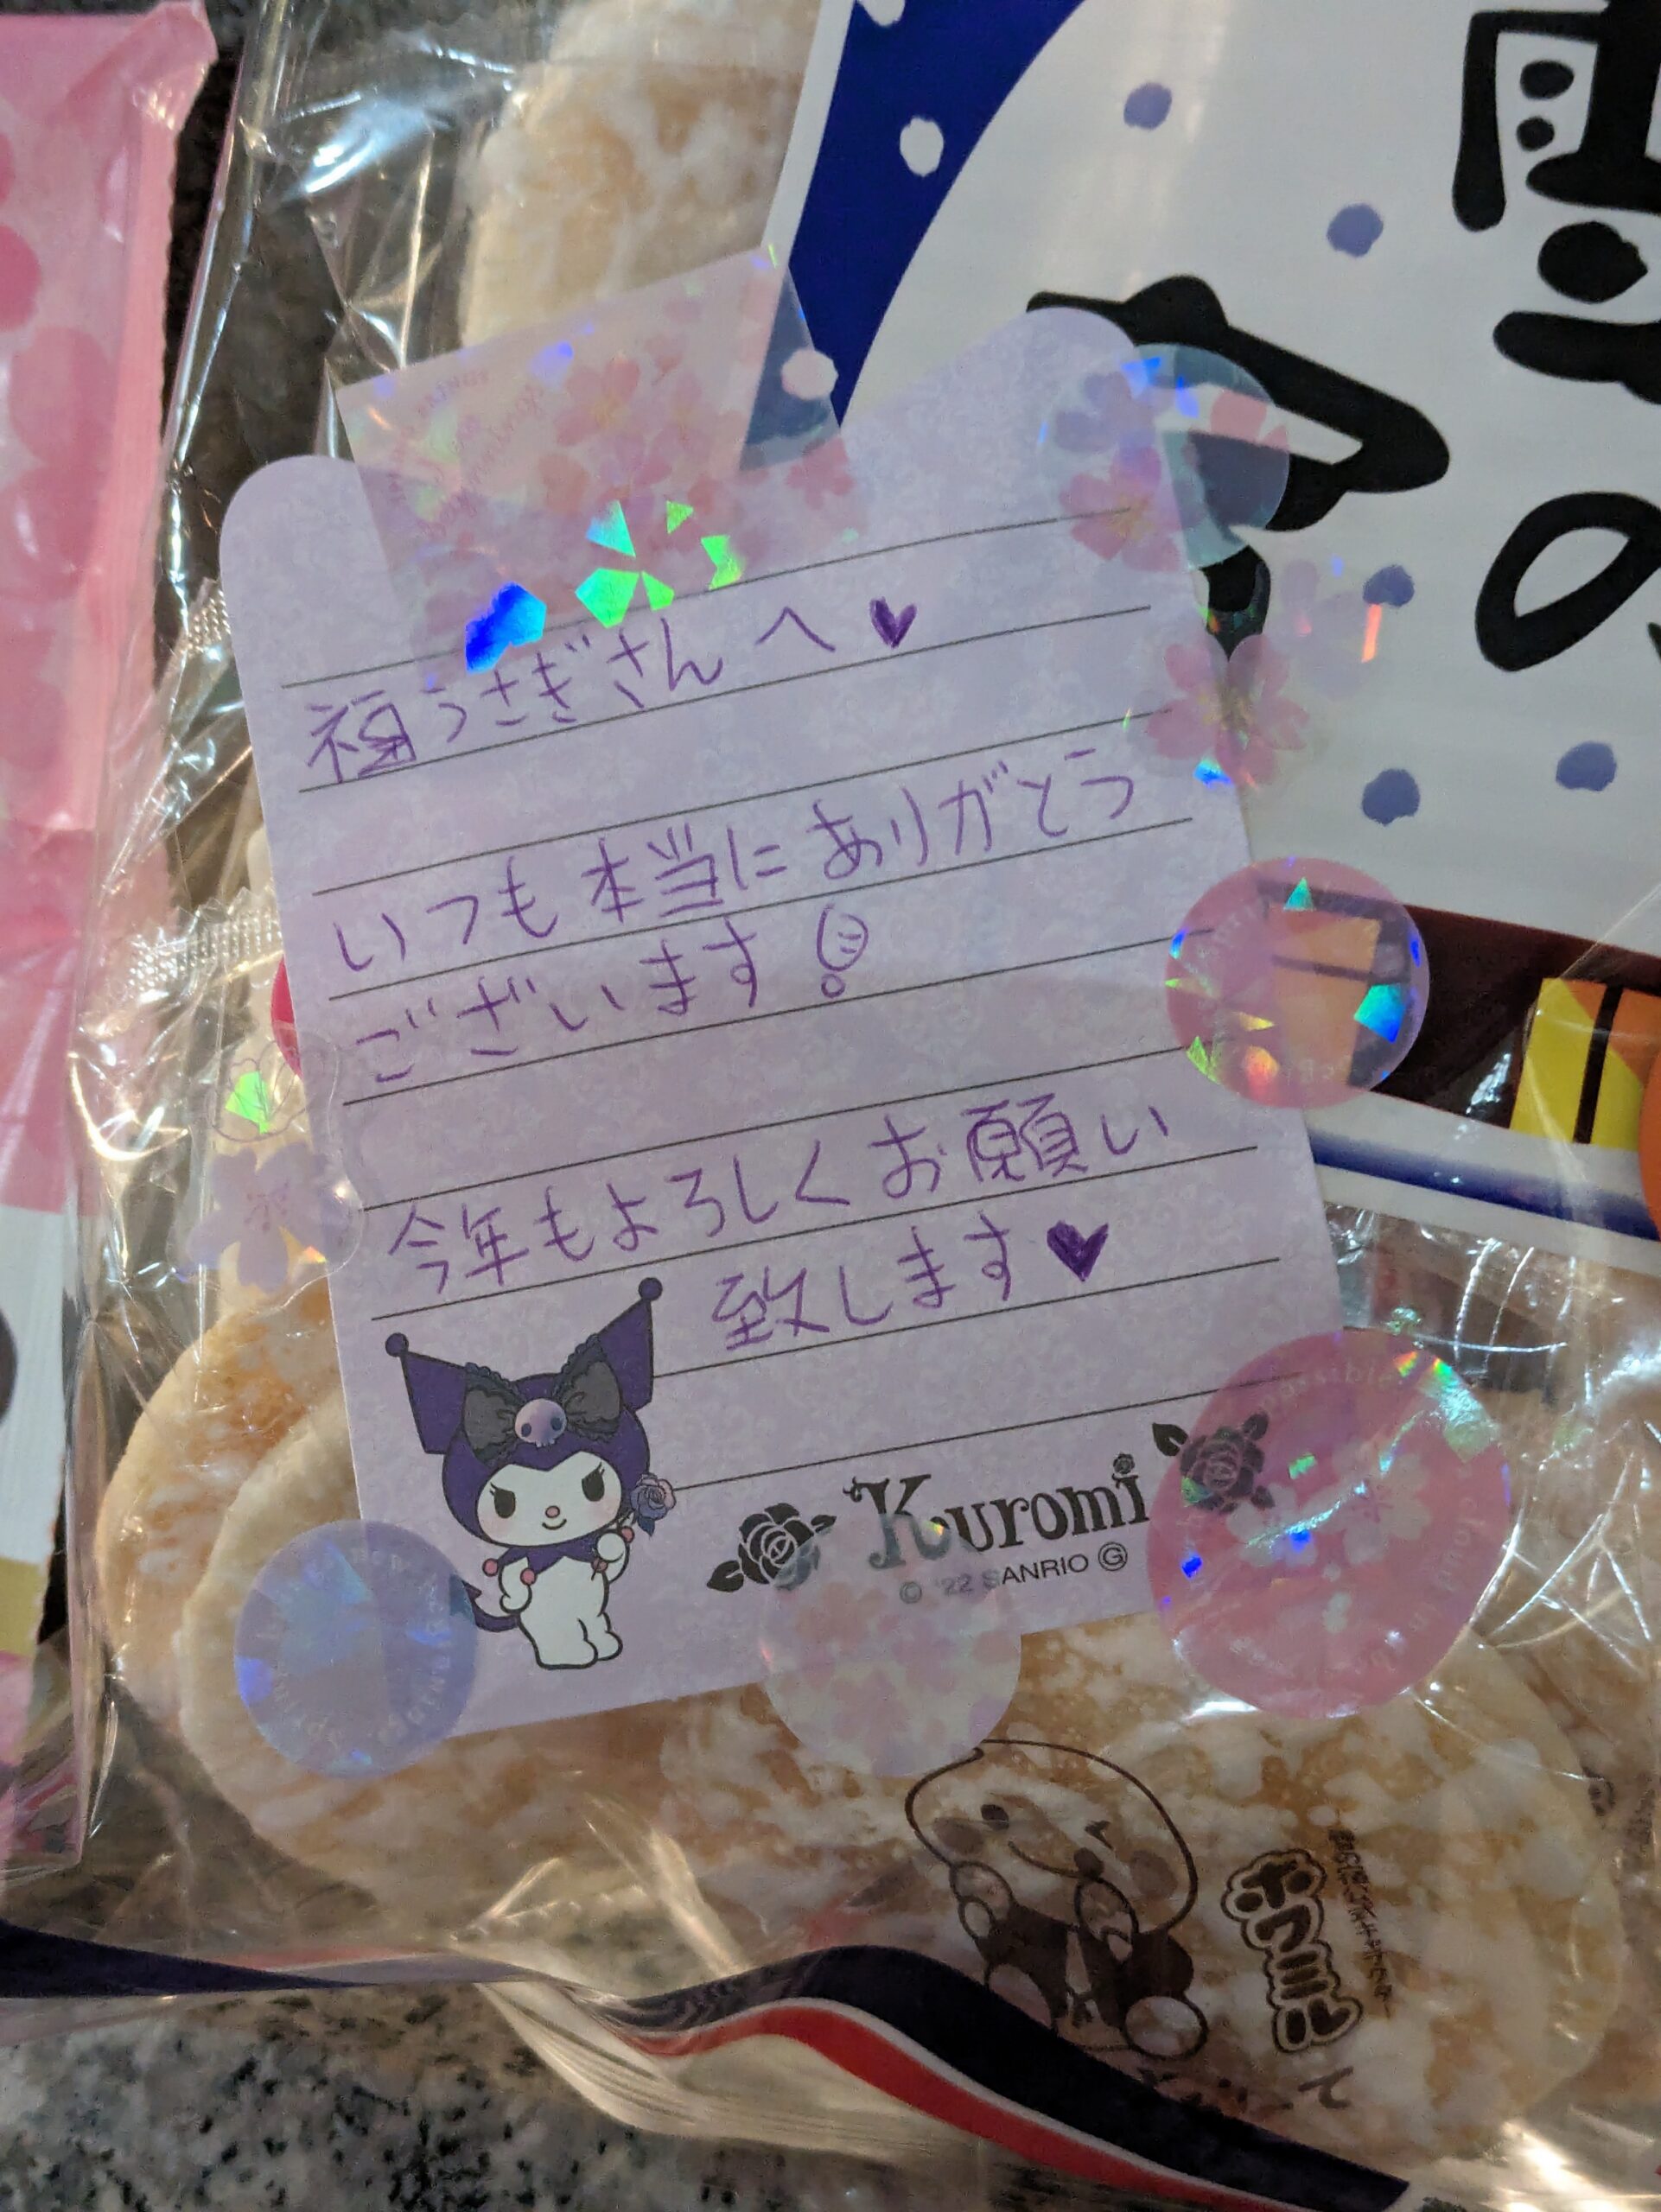 雪
の
福うさぎさんへ♥
いつも本当にありがとう
ございます!
今年もよろしくお願い
致します♥
Kuromi
© '22 SANRIO Ⓖ
ホワミル